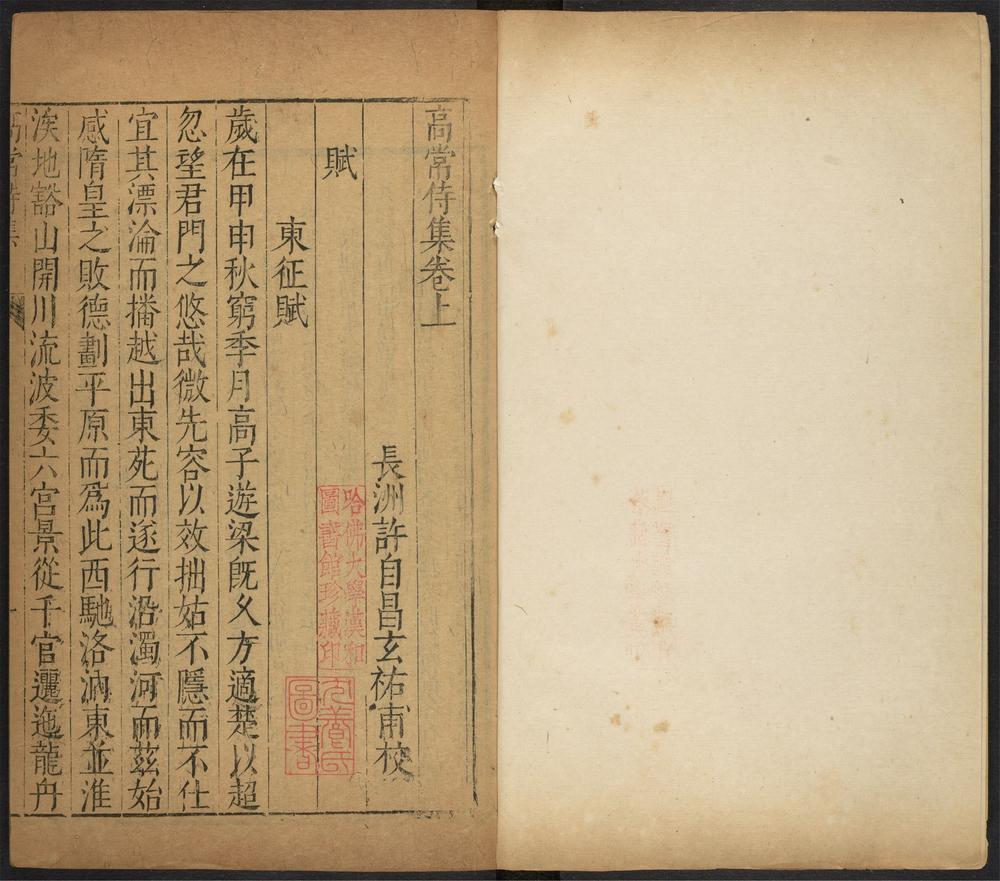 高常侍集卷上
長洲許自昌玄祐甫校
賦
東征賦
歲在甲申秋窮季月高子遊梁旣久方適楚以超
忽望君門之悠哉微先容以效拙姑不隱而不仕
宜其漂淪而播越出東苑而遂行沿濁河而茲始
感隋皇之敗德劃平原而爲此西馳洛汭東並淮
涘地豁山開川流波委六宮景從千官邐迤龍舟
高常侍集
哈佛大學漢和
圖書館珍藏印
圖書